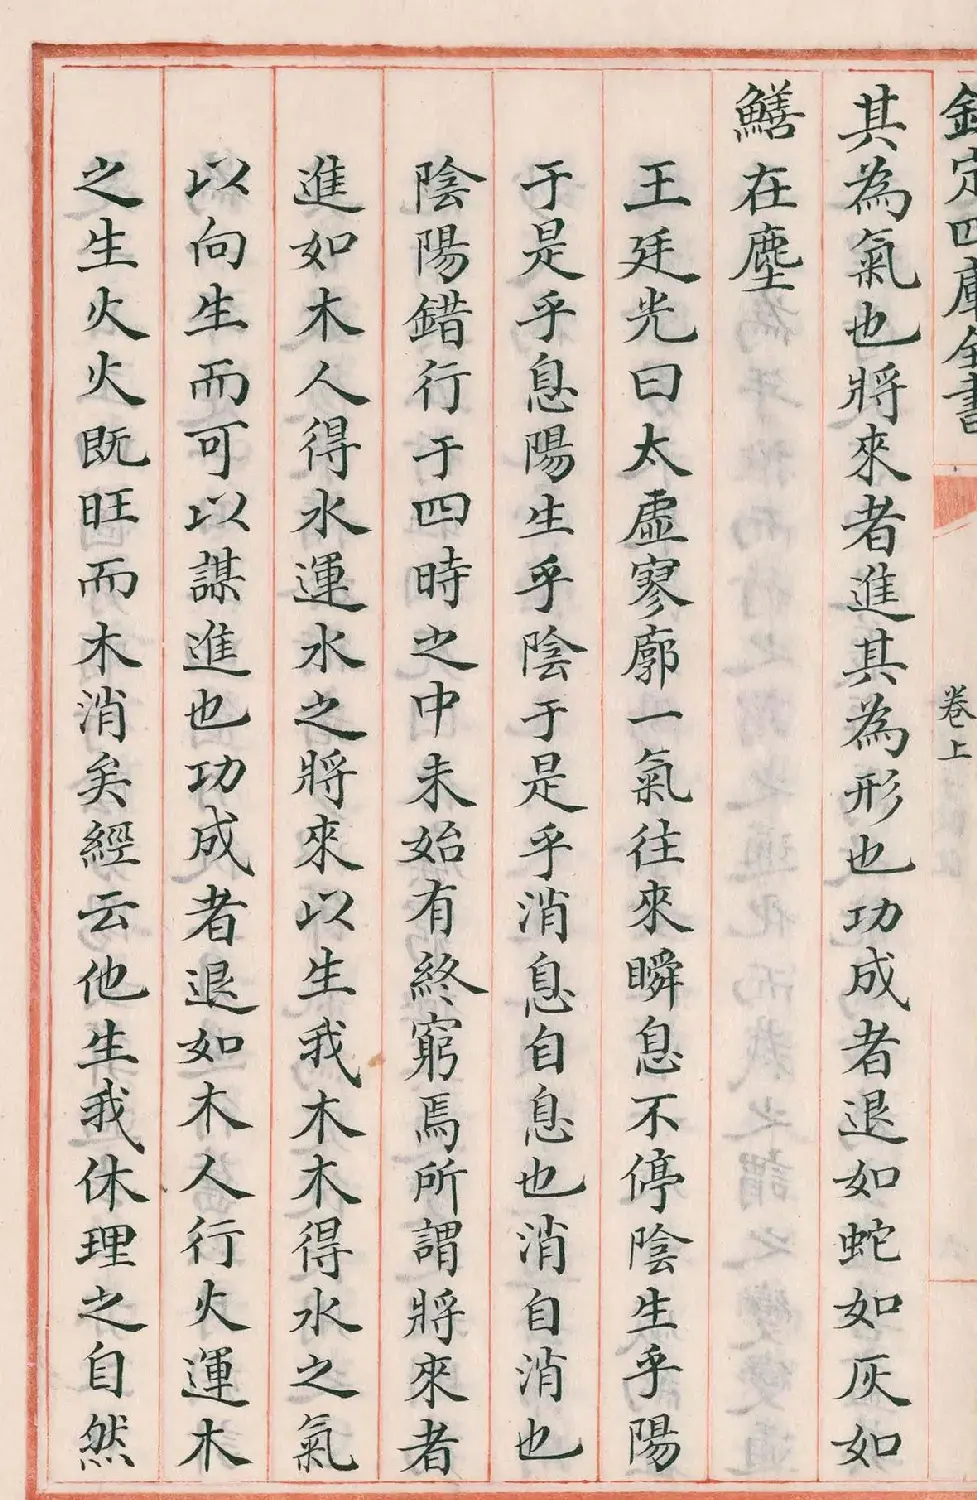 欽定四庫全書
卷上
其為氣也將來者進其為形也功成者退如蛇如灰如
鱔在塵
王廷光曰太虛寥廓一氣往來瞬息不停陰生乎陽
于是乎息陽生乎陰于是乎消息自息也消自消也
陰陽錯行于四時之中未始有終窮焉所謂將來者
進如木人得水運水之將來以生我木木得水之氣
以向生而可以謀進也功成者退如木人行火運木
之生火火既旺而木消矣經云他生我休理之自然